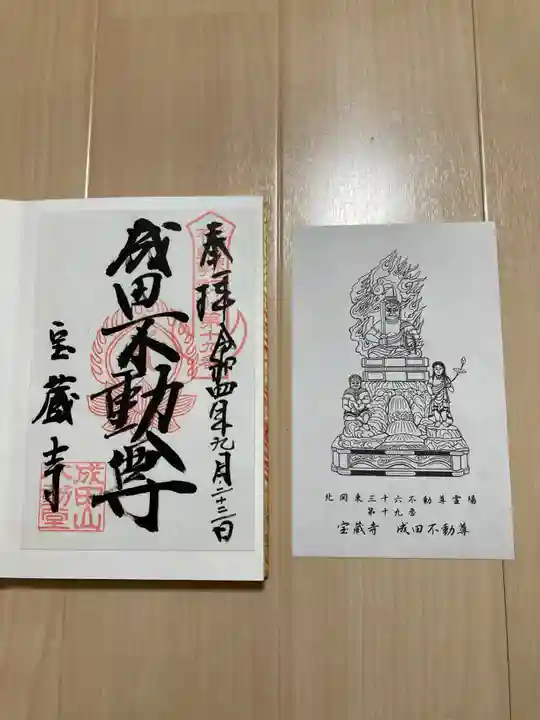 奉拝
令和四年九月二十二日
成田不動尊
宝蔵寺
成田山
不動堂
北関東三十六不動尊霊場
第十九番
宝蔵寺 成田不動尊